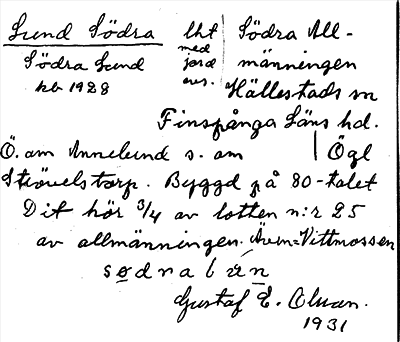 Lund Södra lht Södra All-
Södra Lund med jord männingen
kb 1928 avs. Hällestads sn
Finspånga Läns hd.
Ö. om Annelund s. om | Ögl
Strövelstorp. Byggd på 80-talet
Dit hör 3/4 av lotten n:r 25
av allmänningen. Även = Vittmossen
sødnalún
Gustaf E. Olsson.
1931